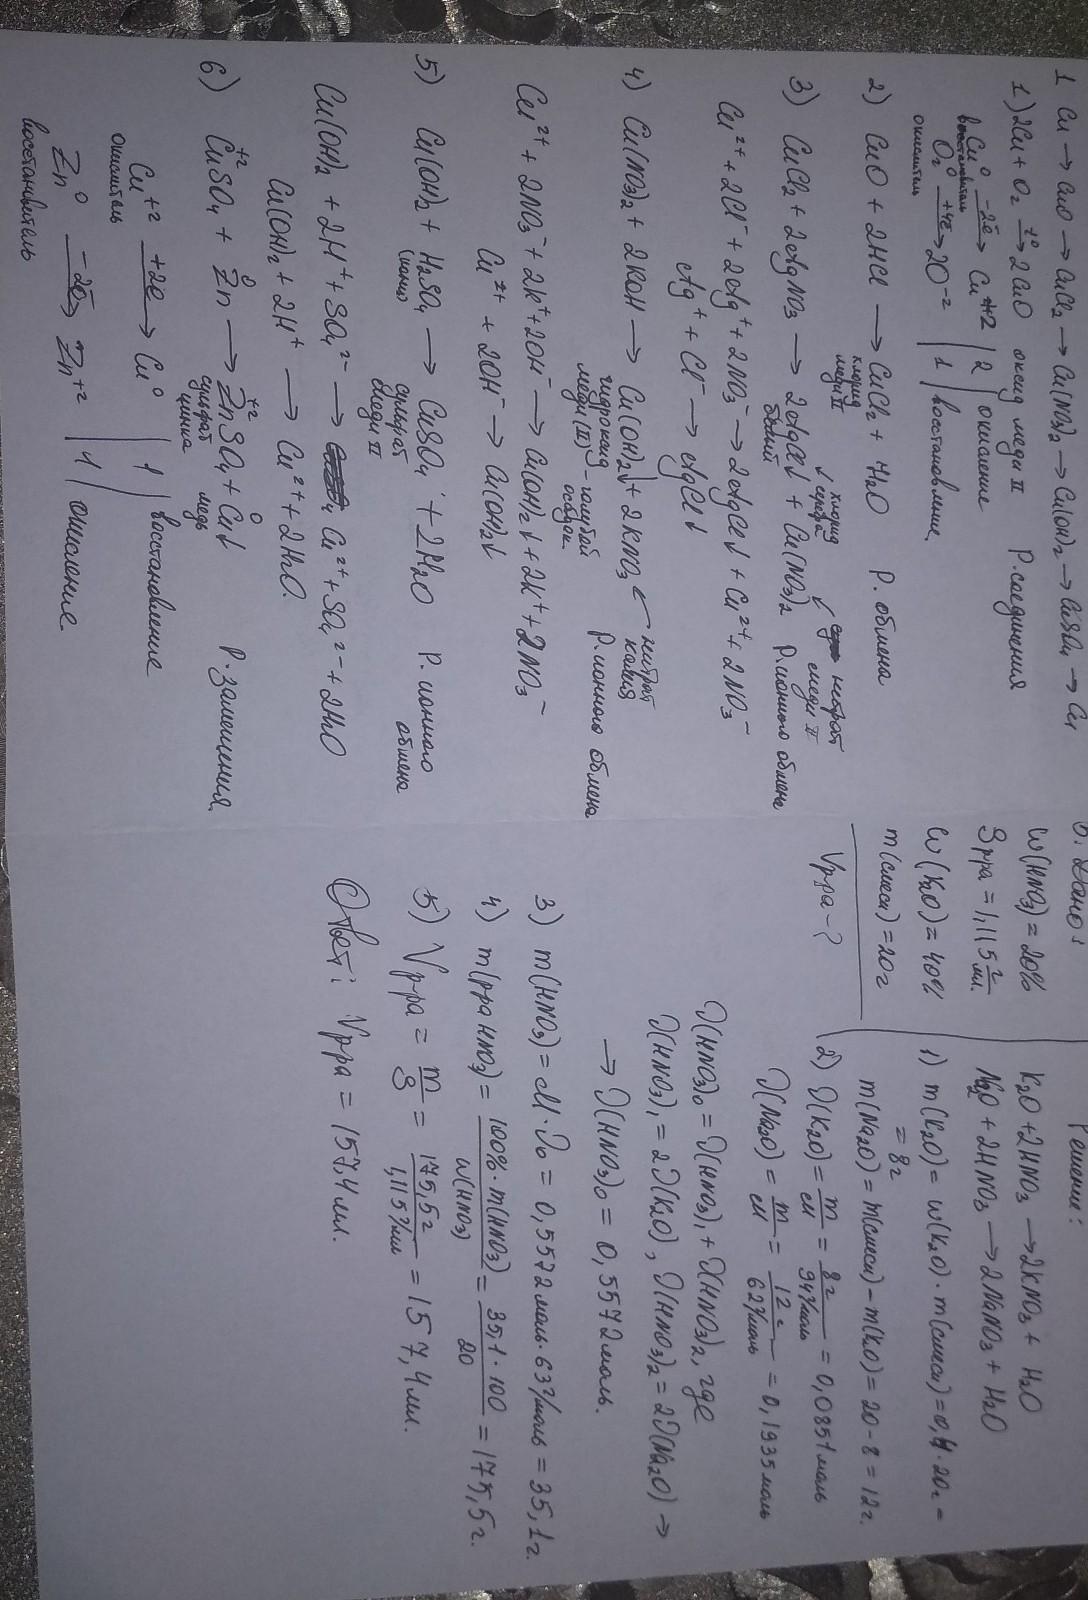 1 Cu → CuO → CuCl2 → Cu(NO3)2 → Cu(OH)2 → CuSO4 → Cu
1) 2Cu + O2 t°→ 2CuO оксид меди II Р. соединения
Cu⁰ -2ē→ Cu+2 | 2 | окисление
восстановитель
O2⁰ +4ē→ 2O-2 | 1 | восстановление
окислитель
2) CuO + 2HCl → CuCl2 + H2O Р. обмена
хлорид меди II
хлорид серебра нитрат меди II
3) CuCl2 + 2AgNO3 → 2AgCl↓ + Cu(NO3)2 Р. ионного обмена
белый
Cu2+ + 2Cl- + 2Ag+ + 2NO3- → 2AgCl↓ + Cu2+ + 2NO3-
Ag+ + Cl- → AgCl↓
4) Cu(NO3)2 + 2KOH → Cu(OH)2↓ + 2KNO3 ← нитрат калия
гидроксид меди (II) - голубой осадок Р. ионного обмена
Cu2+ + 2NO3- + 2K+ + 2OH- → Cu(OH)2↓ + 2K+ + 2NO3-
Cu2+ + 2OH- → Cu(OH)2↓
5) Cu(OH)2 + H2SO4 → CuSO4 + 2H2O Р. ионного обмена
сульфат меди II
Cu(OH)2 + 2H+ + SO4 2- → Cu2+ + SO4 2- + 2H2O
Cu(OH)2 + 2H+ → Cu2+ + 2H2O.
6) Cu+2SO4 + Zn⁰ → Zn+2SO4 + Cu⁰↓ Р. замещения
сульфат цинка медь
Cu+2 +2ē→ Cu⁰ | 1 | восстановление
окислитель
Zn⁰ -2ē→ Zn+2 | 1 | окисление.
восстановитель
Дано:
W(HNO3) = 20%
ρ р-ра = 1,115 г/мл.
W(K2O) = 40%
m(смеси) = 20г
Vр-ра - ?
Решение:
K2O + 2HNO3 → 2KNO3 + H2O
Na2O + 2HNO3 → 2NaNO3 + H2O
1) m(K2O) = W(K2O) · m(смеси) = 0,4 · 20г =
= 8г
m(Na2O) = m(смеси) - m(K2O) = 20 - 8 = 12г.
2) ν(K2O) = m/M = 8г/94г/моль = 0,0851 моль
ν(Na2O) = m/M = 12г/62г/моль = 0,1935 моль
ν(HNO3)0 = ν(HNO3)1 + ν(HNO3)2, где
ν(HNO3)1 = 2ν(K2O), ν(HNO3)2 = 2ν(Na2O) →
→ ν(HNO3)0 = 0,5572 моль.
3) m(HNO3) = M · ν0 = 0,5572 моль · 63г/моль = 35,1г.
4) m(р-ра HNO3) = 100% · m(HNO3)/W(HNO3) = 35,1 · 100/20 = 175,5г.
5) Vр-ра = m/ρ = 175,5г/1,115г/мл = 157,4 мл.
Ответ: Vр-ра = 157,4 мл.